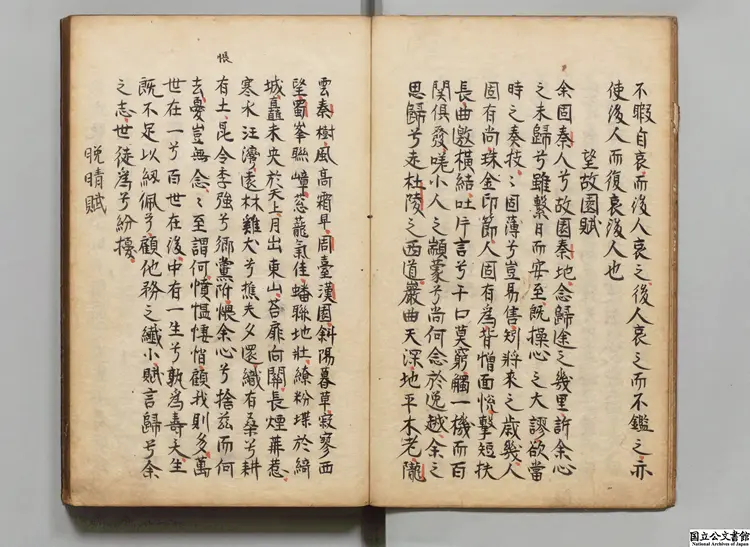 不暇自哀而後人哀之後人哀之而不鑑之亦
使後人而復哀後人也
望故園賦
余固秦人兮故園秦地念歸途之幾里許余心
之未歸兮雖繫日而安至既操心之大謬欲當
時之奏技〻固薄兮豈易售矧將來之歲幾人
固有尚珠金印節人固有爲背憎面悅擊短扶
長曲邀橫結吐片言兮千口莫窮觸一機而百
關俱發嗟小人之顓蒙兮尚何念於逸越余之
思歸兮走杜陵之西道巖曲天深地平木老隴
雲秦樹風高霜早周臺漢園斜陽暮草寂寥西
望蜀峯聯嶂葱蘢氣佳蟠聯地壯繚粉堞於綺
城矗未央於天上月出東山苔扉向關長煙苒惹
寒水注灣遠林雞犬兮樵夫夕還織有桑兮耕
有土昆令季強兮鄉黨附悵余心兮捨茲而何
去憂豈無念〻至謂何憤慍悽悄顧我則多萬
世在一兮百世在後中有一生兮孰爲壽夭生
既不足以紉佩兮顧他務之纖小賦言歸兮余
之志世徒爲兮紛擾
晚晴賦
悵
国立公文書館
National Archives of Japan